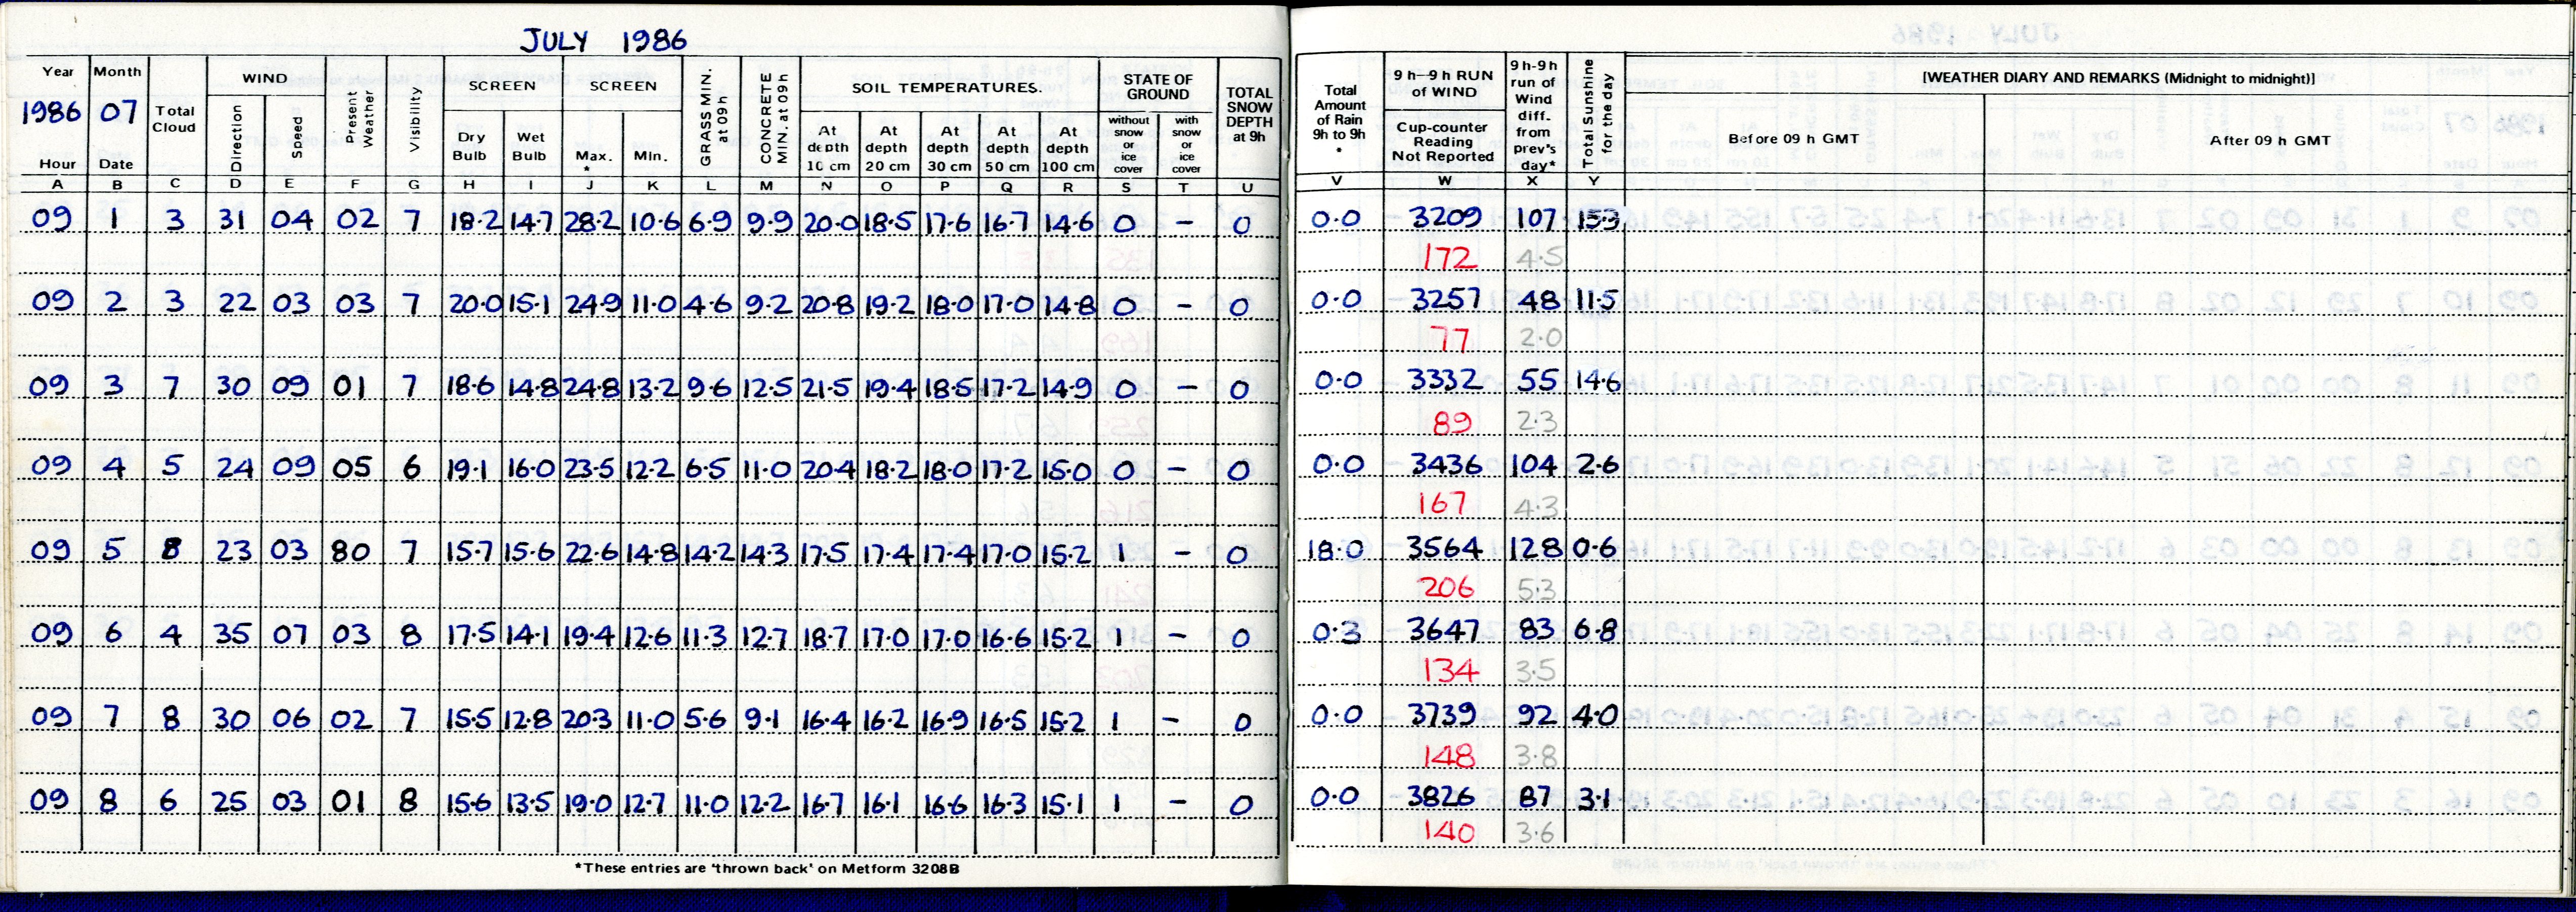 JULY 1986
Year Month Total Cloud WIND Present Weather Visibility SCREEN SCREEN GRASS MIN. at 09h CONCRETE MIN. at 09h SOIL TEMPERATURES. STATE OF GROUND TOTAL SNOW DEPTH at 9h Total Amount of Rain 9h to 9h * 9h-9h RUN of WIND 9h-9h run of Wind diff. from prev's day* Total Sunshine for the day [WEATHER DIARY AND REMARKS (Midnight to midnight)]
1986 07
Hour Date Direction Speed Dry Bulb Wet Bulb Max. * Min. At depth 10 cm At depth 20 cm At depth 30 cm At depth 50 cm At depth 100 cm without snow or ice cover with snow or ice cover Cup-counter Reading Not Reported Before 09 h GMT After 09 h GMT
A B C D E F G H I J K L M N O P Q R S T U V W X Y
09 1 3 31 04 02 7 18.2 14.7 28.2 10.6 6.9 9.9 20.0 18.5 17.6 16.7 14.6 0 - 0 0.0 3209 107 15.3
172 4.5
09 2 3 22 03 03 7 20.0 15.1 24.9 11.0 4.6 9.2 20.8 19.2 18.0 17.0 14.8 0 - 0 0.0 3257 48 11.5
77 2.0
09 3 7 30 09 01 7 18.6 14.8 24.8 13.2 9.6 12.5 21.5 19.4 18.5 17.2 14.9 0 - 0 0.0 3332 55 14.6
89 2.3
09 4 5 24 09 05 6 19.1 16.0 23.5 12.2 6.5 11.0 20.4 18.2 18.0 17.2 15.0 0 - 0 0.0 3436 104 2.6
167 4.3
09 5 8 23 03 80 7 15.7 15.6 22.6 14.8 14.2 14.3 17.5 17.4 17.4 17.0 15.2 1 - 0 18.0 3564 128 0.6
206 5.3
09 6 4 35 07 03 8 17.5 14.1 19.4 12.6 11.3 12.7 18.7 17.0 17.0 16.6 15.2 1 - 0 0.3 3647 83 6.8
134 3.5
09 7 8 30 06 02 7 15.5 12.8 20.3 11.0 5.6 9.1 16.4 16.2 16.9 16.5 15.2 1 - 0 0.0 3739 92 4.0
148 3.8
09 8 6 25 03 01 8 15.6 13.5 19.0 12.7 11.0 12.2 16.7 16.1 16.6 16.3 15.1 1 - 0 0.0 3826 87 3.1
140 3.6
*These entries are 'thrown back' on Metform 3208B